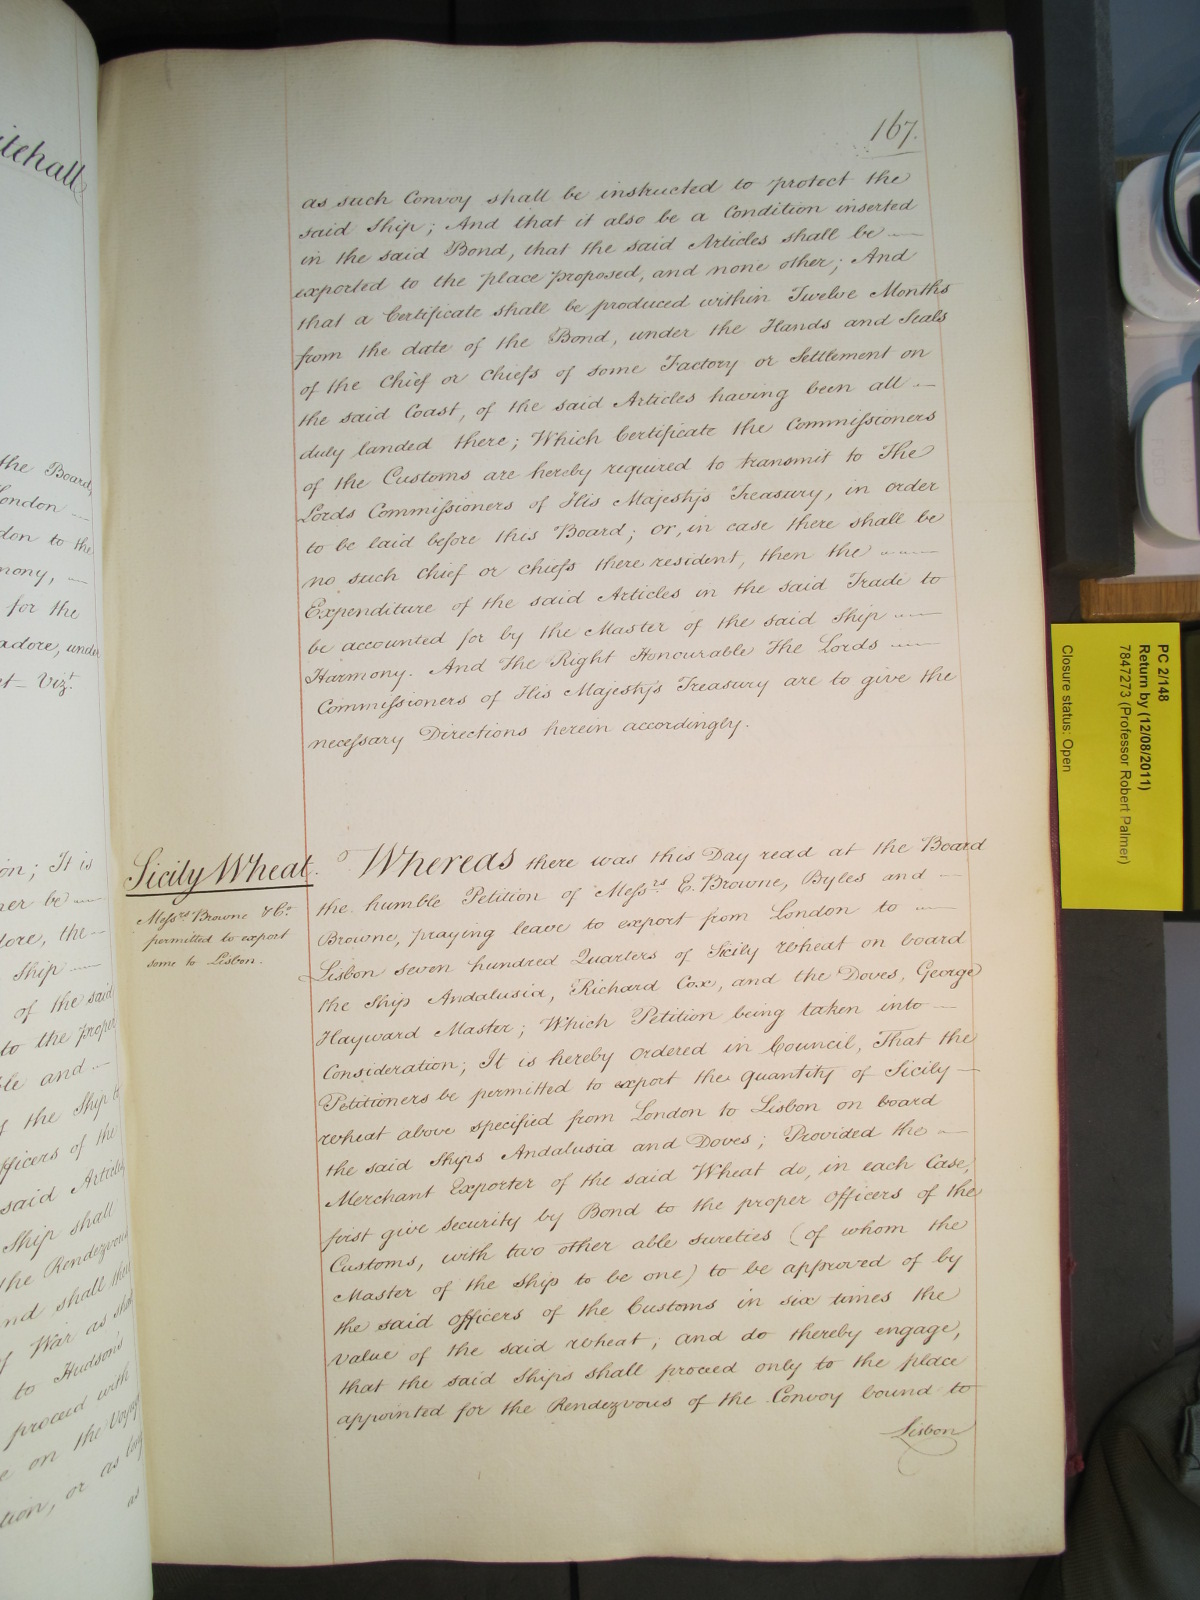 itehall
the Board,
London —
don to the
mony, —
for the
adore, under
Vizt.
on; It is
her be —
dore, the —
Ship —
of the said
to the proper
ble and —
of the Ship to
officers of the
said Articles
Ship shall
the Rendezvous
nd shall that
of War as shall
to Hudson's
proceed with
e on the Voyage
tion, or as long
as
167.
as such Convoy shall be instructed to protect the
said Ship; And that it also be a Condition inserted
in the said Bond, that the said Articles shall be —
exported to the place proposed, and none other; And
that a Certificate shall be produced within Twelve Months
from the date of the Bond, under the Hands and Seals
of the Chief or Chiefs of some Factory or Settlement on
the said Coast, of the said Articles having been all —
duly landed there; Which Certificate the Commissioners
of the Customs are hereby required to transmit to The
Lords Commissioners of His Majesty's Treasury, in order
to be laid before this Board; or, in case there shall be
no such Chief or Chiefs there resident, then the —
Expenditure of the said Articles in the said Trade to
be accounted for by the Master of the said Ship —
Harmony. And The Right Honourable The Lords —
Commissioners of His Majesty's Treasury are to give the
necessary Directions herein accordingly.
Sicily Wheat.
Messrs Browne & Co.
permitted to export
some to Lisbon.
Whereas there was this Day read at the Board
the humble Petition of Messrs E. Browne, Byles and —
Browne, praying leave to export from London to —
Lisbon seven hundred Quarters of Sicily wheat on board
the Ship Andalusia, Richard Cox, and the Doves, George
Hayward Master; Which Petition being taken into —
Consideration; It is hereby ordered in Council, That the
Petitioners be permitted to export the quantity of Sicily —
wheat above specified from London to Lisbon on board
the said Ships Andalusia and Doves; Provided the —
Merchant Exporter of the said Wheat do, in each Case,
first give security by Bond to the proper Officers of the
Customs, with two other able sureties (of whom the
Master of the Ship to be one) to be approved of by
the said Officers of the Customs in six times the
value of the said wheat; and do thereby engage,
that the said Ships shall proceed only to the place
appointed for the Rendezvous of the Convoy bound to
Lisbon
PC 2/148
Return by (12/08/2011)
7847273 (Professor Robert Palmer)
Closure status: Open